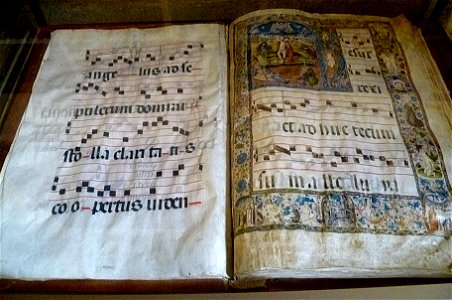 ange lus ad se
pulcrum domini
sto lla clari ta ti s
co o pertus viden
esur
rexi
et ad huc tecum
sum alle lu ya